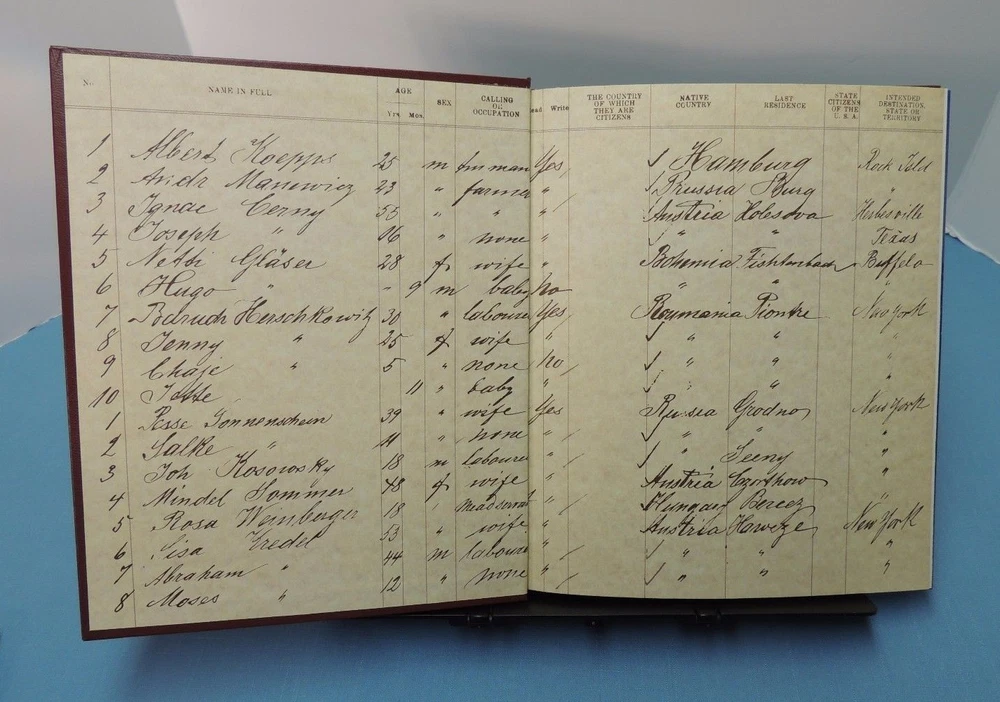 No. NAME IN FULL AGE Yrs. Mos. SEX CALLING OR OCCUPATION ead Write THE COUNTRY OF WHICH THEY ARE CITIZENS NATIVE COUNTRY LAST RESIDENCE STATE CITIZENS OF THE U. S. A. INTENDED DESTINATION, STATE OR TERRITORY
1 Albert Koepps 25 m Yes, Hamburg
2 Andr Manewicz 23 " farmer Prussia
3 Ignac Cerny 55 " " " Austria Holesova
4 Joseph " 16 " none " " " Texas
5 Netti Gläser 28 f wife " Bohemia Buffelo
6 Hugo " " 9 m baby No " " "
7 Herschkowitz 30 " laboure Yes, Roumania New York
8 Jenny " 25 f wife " " " "
9 Chaje " 5 " none No " " "
10 11 " baby " " " "
1 Sonnenschein 39 " wife Yes Russia Grodno New York
2 Salke " 11 " none " " "
3 Joh Kosorosky 18 m laboure " " "
4 Mindel Sommer 48 f wife " Austria "
5 Rosa Weinberger 18 " " Hungary "
6 53 " wife " Austria New York
7 Abraham " 44 m laboure " " " "
8 Moses " 12 " none " " " "